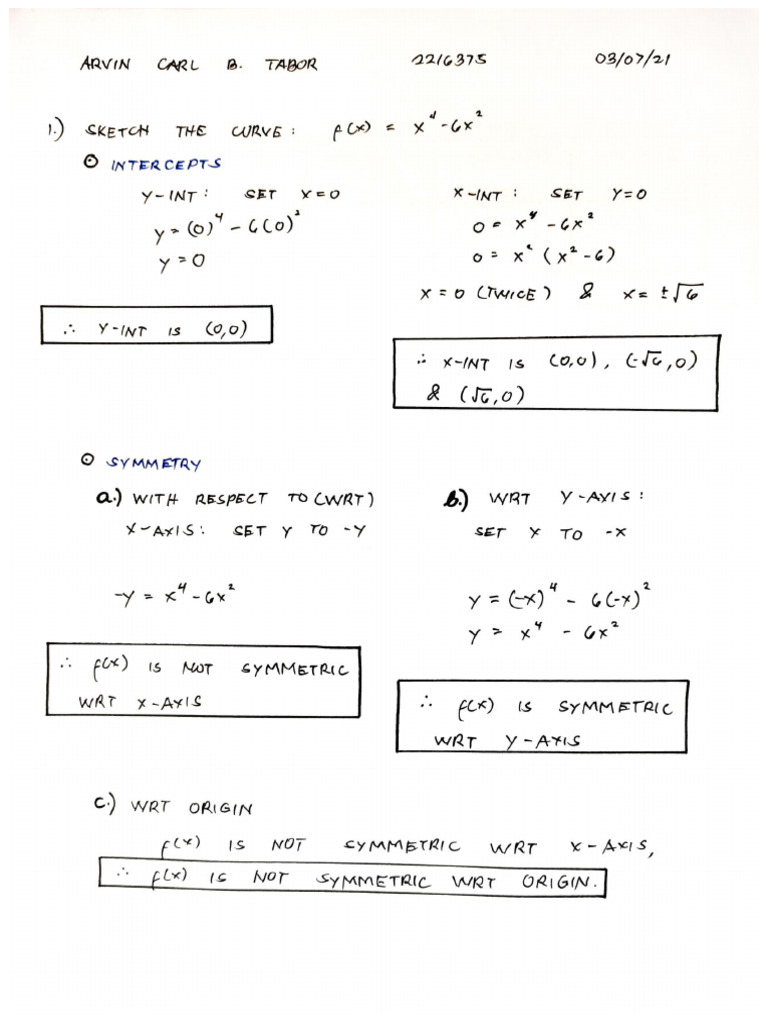 ARVIN CARL B. TABOR 2216375 03/07/21
1.) SKETCH THE CURVE: f(x) = x⁴-6x²
⊙ INTERCEPTS
Y-INT: SET X=0
y = (0)⁴ - 6(0)²
y = 0
∴ Y-INT IS (0,0)
X-INT: SET Y=0
0 = x⁴ - 6x²
0 = x² (x² - 6)
x = 0 (TWICE) & x = ±√6
∴ X-INT IS (0,0), (-√6,0)
& (√6,0)
⊙ SYMMETRY
a.) WITH RESPECT TO (WRT)
X-AXIS: SET Y TO -Y
-y = x⁴ - 6x²
∴ f(x) IS NOT SYMMETRIC
WRT X-AXIS
b.) WRT Y-AXIS:
SET X TO -X
y = (-x)⁴ - 6(-x)²
y = x⁴ - 6x²
∴ f(x) IS SYMMETRIC
WRT Y-AXIS
c.) WRT ORIGIN
f(x) IS NOT SYMMETRIC WRT X-AXIS,
∴ f(x) IS NOT SYMMETRIC WRT ORIGIN.